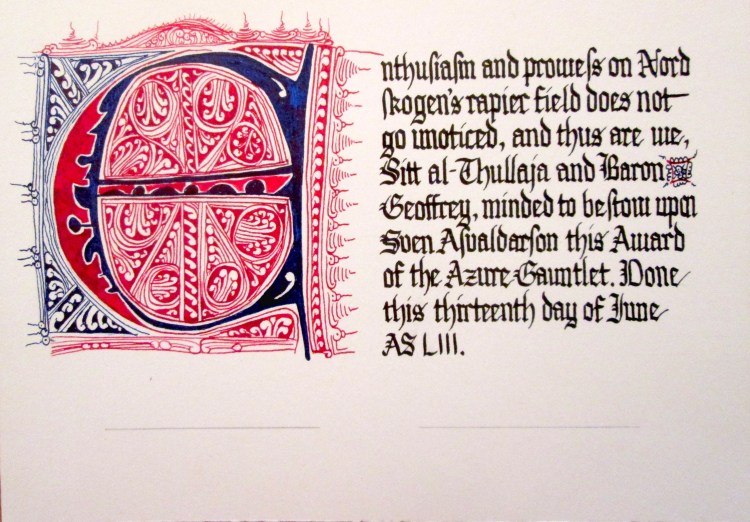 Enthusiasm and prowess on Nord
skogen's rapier field does not
go unoticed, and thus are we,
Sitt al-Thullaja and Baron
Geoffrey, minded to bestow upon
Sven Asvaldarson this Award
of the Azure Gauntlet. Done
this thirteenth day of June
AS LIII.